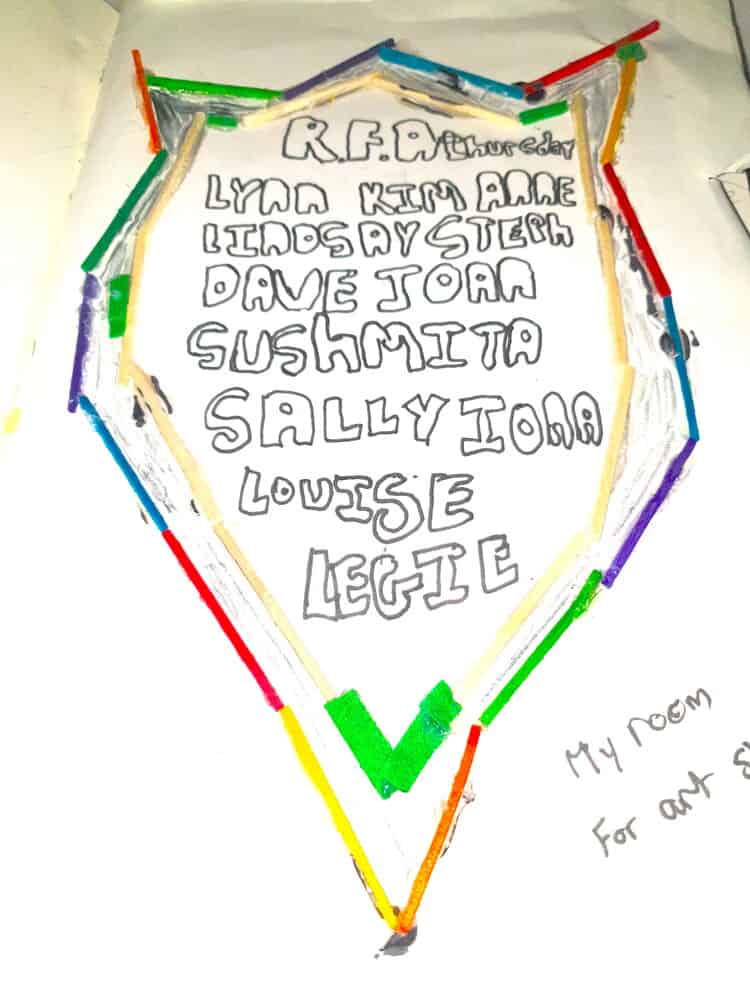 R.F.A Thursday
LYNN KIM ANNE
LINDSAY STEPH
DAVE JOAN
SUSHMITA
SALLY IONA
LOUISE
LEGIE
My room
For art